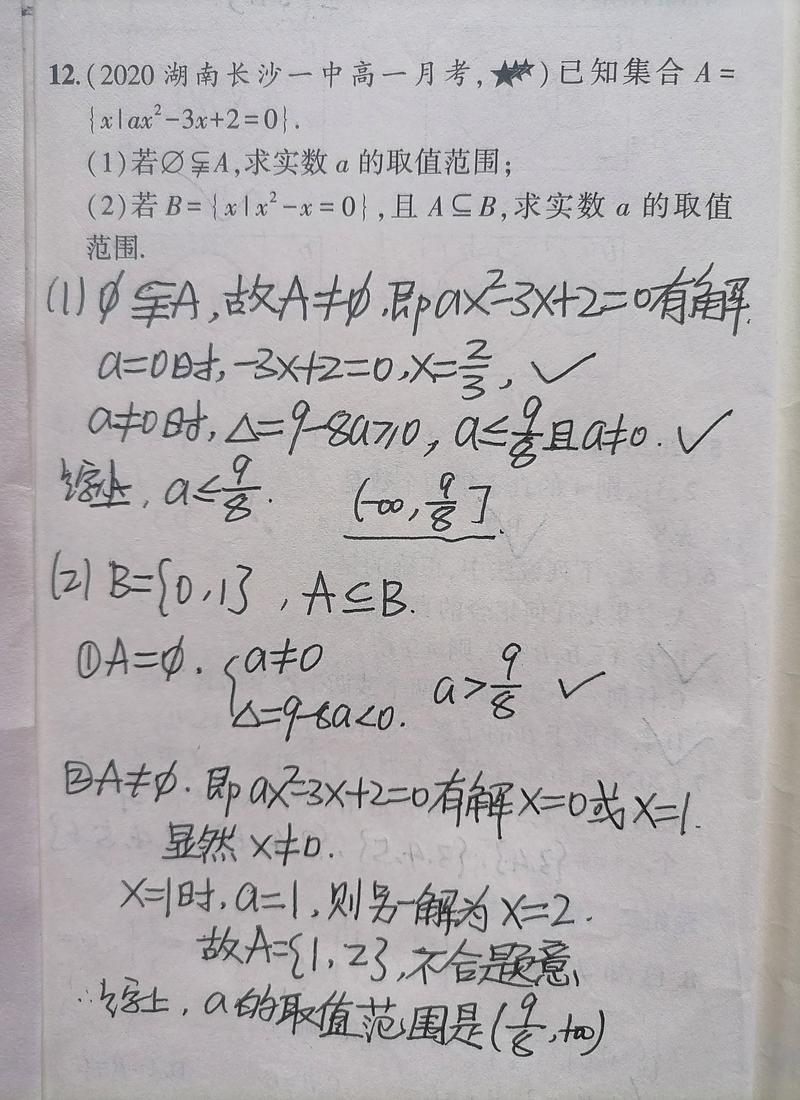 12.(2020 湖南长沙一中高一月考,★★★)已知集合 A=
{x|ax²-3x+2=0}.
(1)若∅⫋A,求实数 a 的取值范围;
(2)若 B={x|x²-x=0},且 A⊆B,求实数 a 的取值
范围.
(1) ∅⫋A,故A≠∅.即ax²-3x+2=0有解.
a=0时,-3x+2=0,x=2/3, ✓
a≠0时,Δ=9-8a≥0, a≤9/8且a≠0. ✓
综上, a≤9/8. (-∞,9/8].
(2) B={0,1}, A⊆B.
①A=∅. {a≠0 a>9/8 ✓
Δ=9-8a<0.
②A≠∅.即ax²-3x+2=0有解x=0或x=1.
显然x≠0.
x=1时,a=1,则另一解为x=2.
故A={1,2},不合题意,
∴综上,a的取值范围是(9/8,+∞)